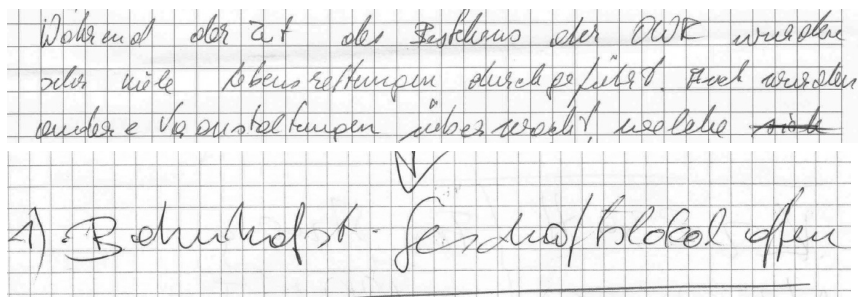 Während der Zeit des Bestehens der ÖWR wurden
sehr viele Lebensrettungen durchgeführt. Auch wurden
andere Veranstaltungen überwacht, welche
1) Bahnhofst. Geschäftslokal offen